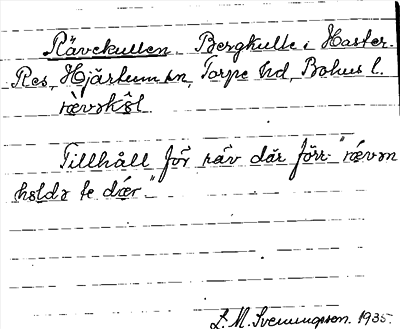 Rävekullen Bergkulle i Haster.
Röd, Hjärtum sn, Torpe hd, Bohus l.
rævəkšl
Tillhåll för räv där förr "rævən
holdə te dær"
L. M. Svenungsson. 1935.